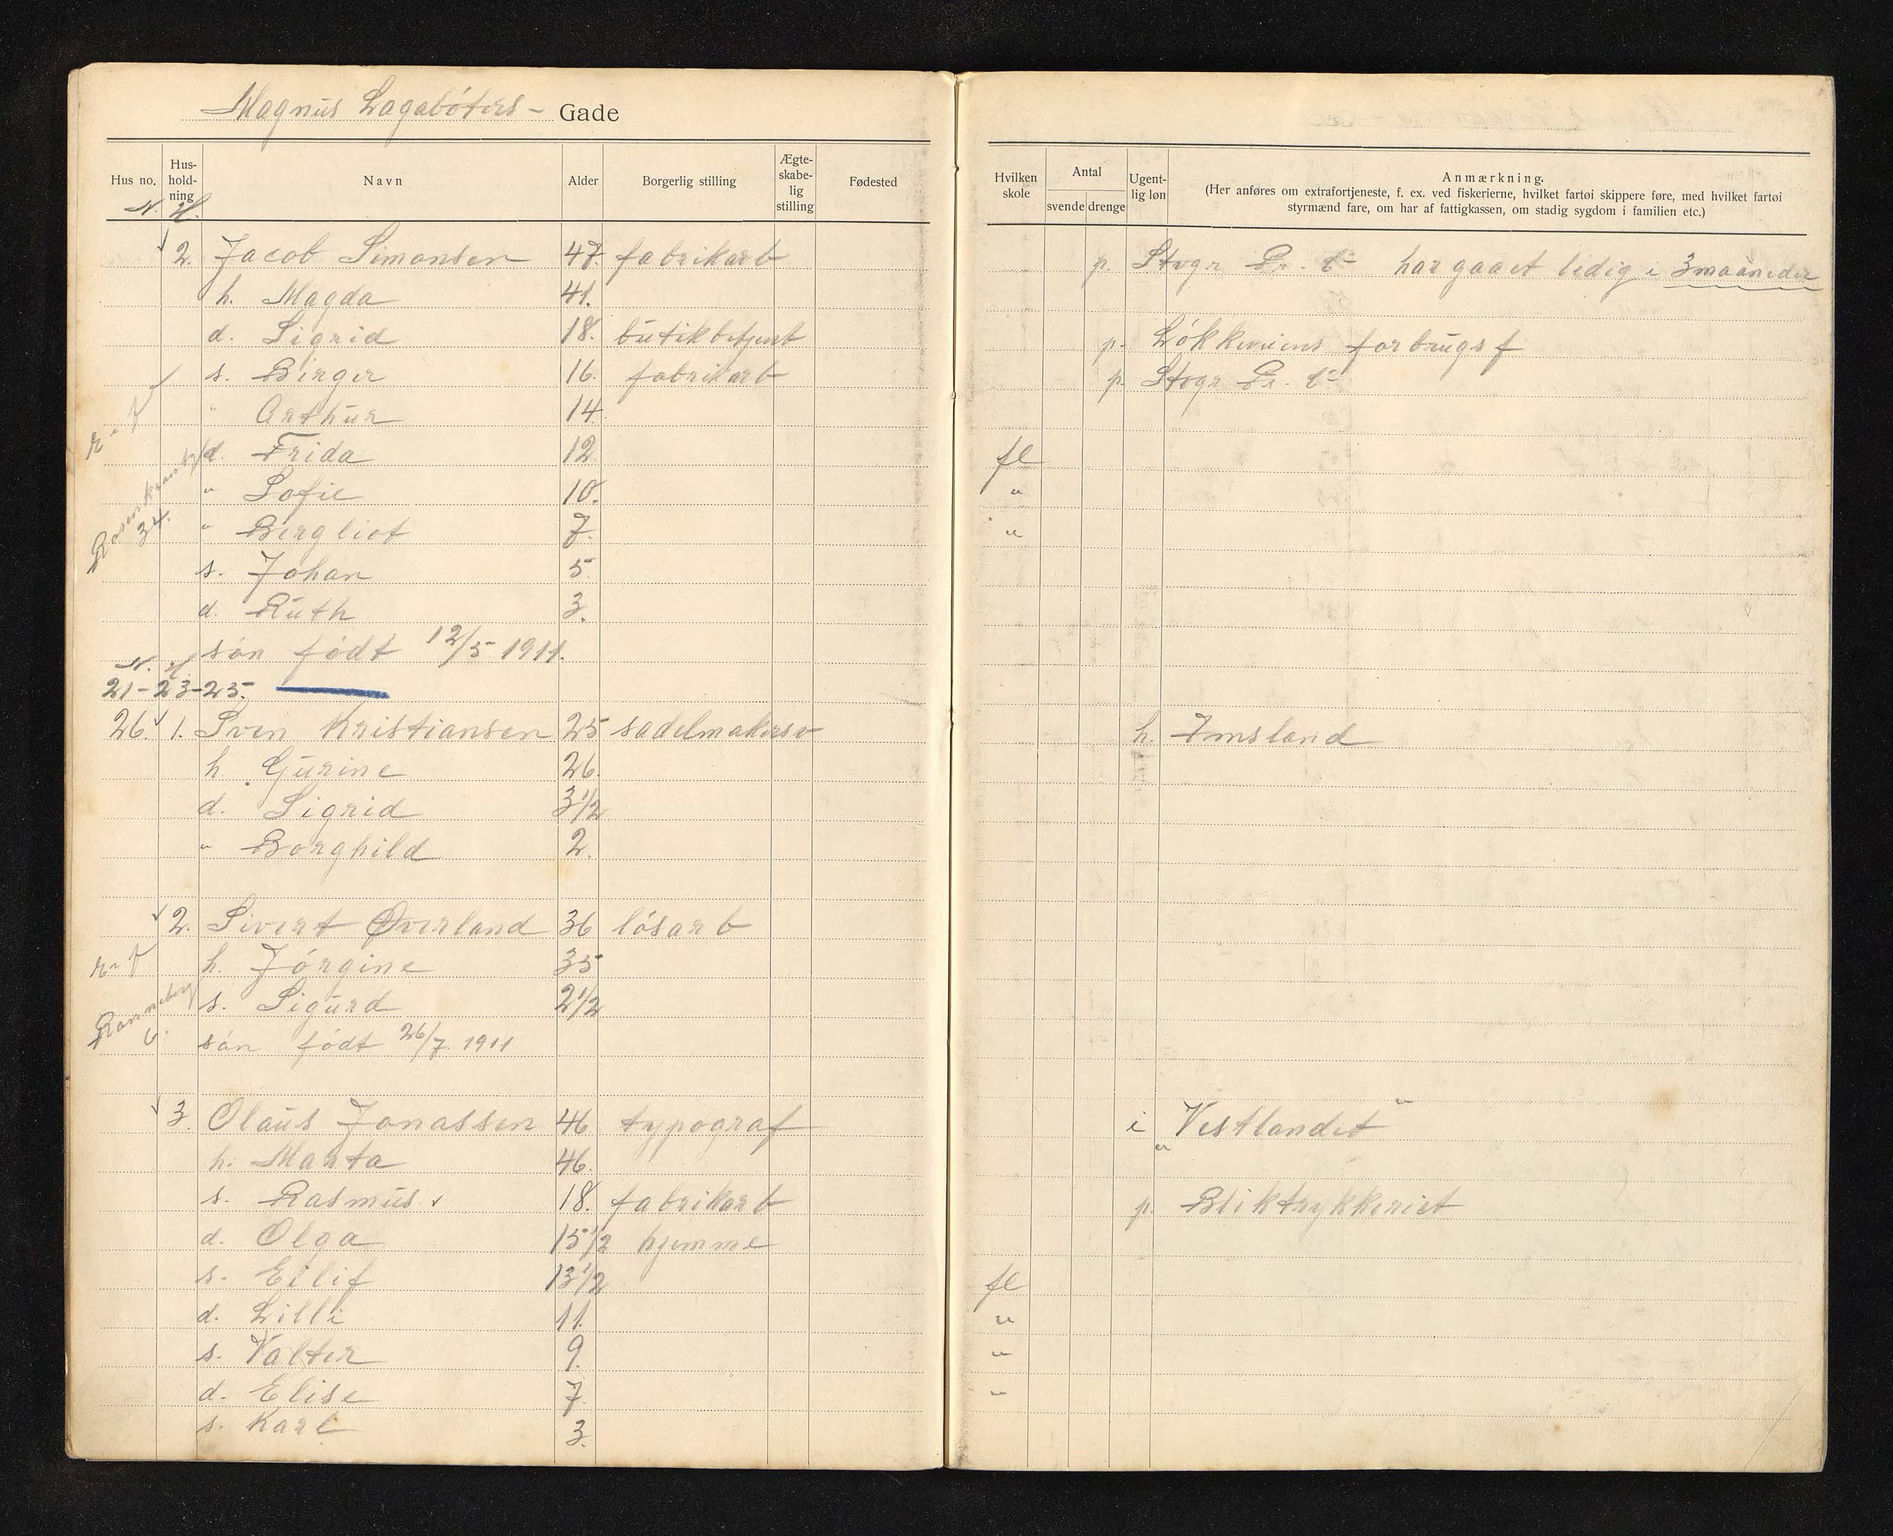 Magnus Lagabøters - Gade
Hus no. Hus-hold-ning Navn Alder Borgerlig stilling Ægte-skabe-lig stilling Fødested Hvilken skole Antal svende drenge Ugent-lig løn Anmærkning.
(Her anføres om extrafortjeneste, f. ex. ved fiskerierne, hvilket fartøi skippere føre, med hvilket fartøi
styrmænd fare, om har af fattigkassen, om stadig sygdom i familien etc.)
N. H.
2. Jacob Simonsen 47. fabrikarb p. Stvgr Pr. C- har gaaet ledig i 3 maaneder
h. Magda 41.
d. Sigrid 18. butikbetjent p. Løkkeveiens forbrugsf
s. Birger 16. fabrikarb p. Stvgr Pr. C-
" Arthur 14.
d. Frida 12 fl
" Sofie 10. "
34.
" Bergliot 7. "
s. Johan 5.
d. Ruth 3.
søn født 12/5 1911.
N. H.
21-23-25.
26. 1. Sven Kristiansen 25 sadelmakersv h. Imsland
h Gurine 26.
d. Sigrid 3 1/2
" Borghild 2.
2. Sivert Øverland 36 løsarb
h. Jørgine 35
s. Sigurd 2 1/2
6.
søn født 26/7. 1911
3. Olaus Jonassen 46 typograf i "Vestlandet"
h. Marta 46.
s. Rasmus. 18. fabrikarb p. Bliktrykkeriet
d. Olga 15 1/2 hjemme
s. Eilif 13 1/2 fl
d. Lilli 11. "
s. Valter 9. "
d. Elise 7. "
s. Karl 3.